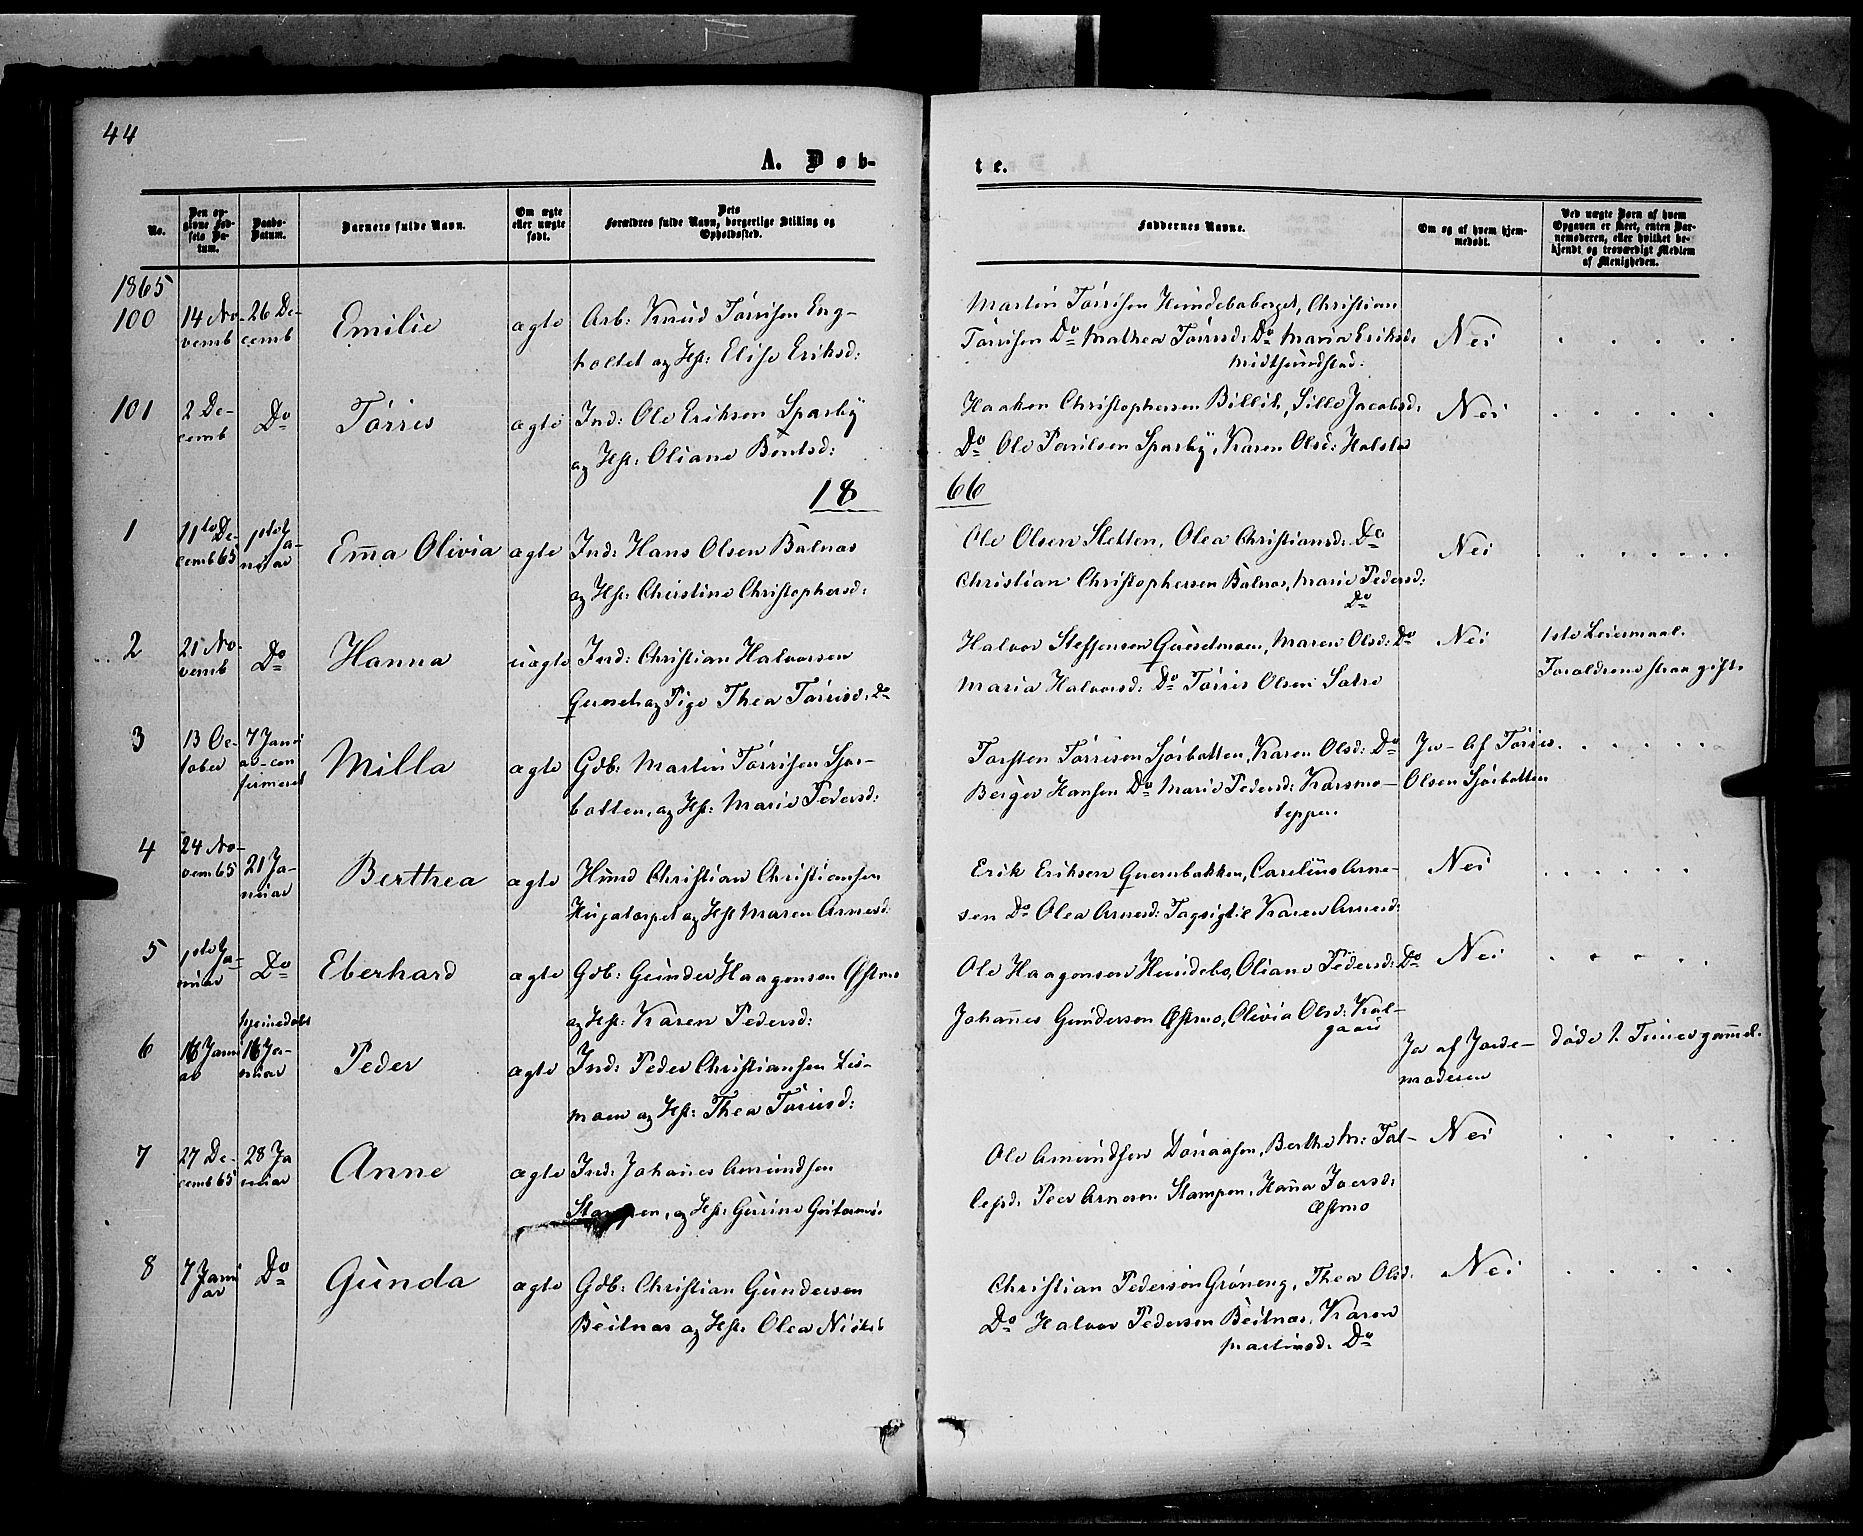 44
A. Døb-
te.
No.
Den op-
givne Fød-
sels Da-
tum.
Daabs-
Datum.
Barnets fulde Navn.
Om ægte
eller uægte
født.
Dets
Forældres fulde Navn, borgerlige Stilling og
Opholdssted.
Faddernes Navne.
Om og af hvem hjem-
medøbt.
Ved uægte Børn af hvem
Opgaven er skeet, enten Bar-
nemoderen, eller hvilket be-
kjendt og troværdigt Medlem
af Menigheden.
1865
100 14 No-
vemb 26 De-
cemb Emilie ægte Arb: Knud Tørrisen Eng-
holtet og Hst: Elise Eriksd:
Martin Tørrisen Hundeboberget, Christian
Tørrisen Do Mathea Tørrisd: Do Maria Eriksd:
Midtsundstad.
Nei
101 2 De-
cemb Do Tørris ægte Ind: Ole Eriksen Sparby
og Hst: Oliane Bentsd:
Haaken Christophersen Billit, Sille Jacobsd:
Do Ole Paulsen Sparby, Karen Olsd: Holstø
Nei
1866
1 11te De-
cemb 65 1ste Ja-
nuar Emma Olivia ægte Ind: Hans Olsen Balnæs
og Hst: Christine Christophersd:
Ole Olsen Sletten, Olea Christiansd: Do
Christian Christophersen Balnæs, Marie Pedersd:
Do
Nei
2 21 No-
vemb Do Hanna uægte Ind: Christian Halvorsen
og Pige Thea Tørrisd: Do
Halvor Steffensen, Maren Olsd: Do
Maria Halvorsd: Do Tørris Olsen Sætre
Nei
1ste Leiermaal.
Forældrene strax gifte
3 13 Oc-
tober 7 Janu
ar con
firmeret Milla ægte Gdb: Martin Tørrisen Sjør-
botten, og Hst: Marie Pedersd:
Torsten Tørrisen Sjørbotten, Karen Olsd: Do
Berger Hansen Do Marie Pedersd: Karsmo-
teppen.
Ja - Af Tørris
Olsen Sjørbotten
4 24 No-
vem 65 21 Ja-
nuar Berthea ægte Husd Christian Christiansen
og Hst Maren Arnesd:
Erik Eriksen Quernbakken, Carelius Arne-
sen Do Olea Arnesd: Karen Arnesd:
Nei
5 1ste Ja-
nuar Do Eberhard ægte Gdb: Gunder Haagensen Østmo
og Hst: Karen Pedersd:
Ole Haagensen Hundebo, Oliane Pedersd: Do
Johannes Gundersen Østmo, Olivia Olsd: Kal-
gaar
Nei
6 16 Janu
ar hjemedøbt
16 Ja-
nuar Peder ægte Ind: Peder Christiansen Lis-
moen og Hst: Thea Tørrisd:
Ja af Jorde-
moderen
døde 2 Timer gammel.
7 27 De-
cemb 65 28 Ja
nuar Anne ægte Ind: Johannes Amundsen
Stampen, og Hst: Gurine
Ole Amundsen, Berthe M: Tol-
lefsd: Peer Arnesen Stampen, Hanna Iversd:
Østmo
Nei
8 7 Janu
ar Do Gunda ægte Gdb: Christian Gundersen
Beitnæs og Hst: Olea
Christian Pedersen Grøneng, Thea Olsd:
Do Halvor Pedersen Beitnæs, Karen
Martinsd: Do
Nei